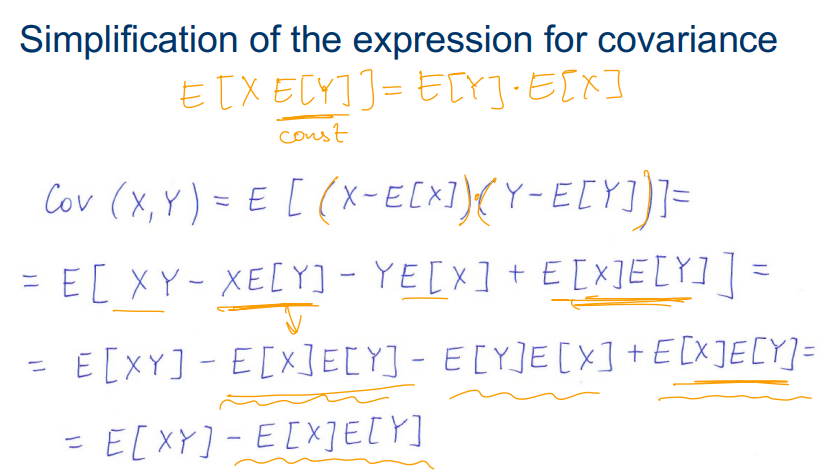 Simplification of the expression for covariance
E[X E[Y]] = E[Y]·E[X]
const
Cov (X,Y) = E [(X-E[X])·(Y-E[Y])]=
= E[ XY - XE[Y] - YE[X] + E[X]E[Y] ] =
= E[XY] - E[X]E[Y] - E[Y]E[X] + E[X]E[Y]=
= E[XY] - E[X]E[Y]